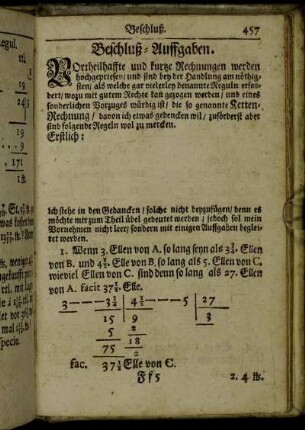 Beschluß. 457
Beschluß-Auffgaben.
VOrtheilhaffte und kurtze Rechnungen werden
hochgepriesen / und sind bey der Handlung am nöthig-
sten / als welche gar vielerley benannte Reguln erfor-
dert / wozu mit gutem Rechte kan gezogen werden / und eines
sonderlichen Vorzuges würdig ist / die so genannte Ketten-
Rechnung / davon ich etwas gedencken wil / zuförderst aber
sind folgende Regeln wol zu mercken.
Erstlich:
Ich stehe in den Gedancken / solche nicht beyzufügen / denn es
möchte mir zum Theil übel gedeutet werden / jedoch sol mein
Vornehmen nicht leer / sondern mit einigen Auffgaben beglei-
tet werden.
1. Wenn 3. Ellen von A. so lang seyn als 3¾. Ellen
von B. und 4⅘. Elle von B. so lang als 5. Ellen von C.
wieviel Ellen von C. sind denn so lang als 27. Ellen
von A. facit 37½. Elle.
3 — 3¾ | 4½ — 5 | 27
15 | 9 | 3
5 2
75 18
2
fac. 37½ Elle von C.
Ff 5 2. 4 lb.